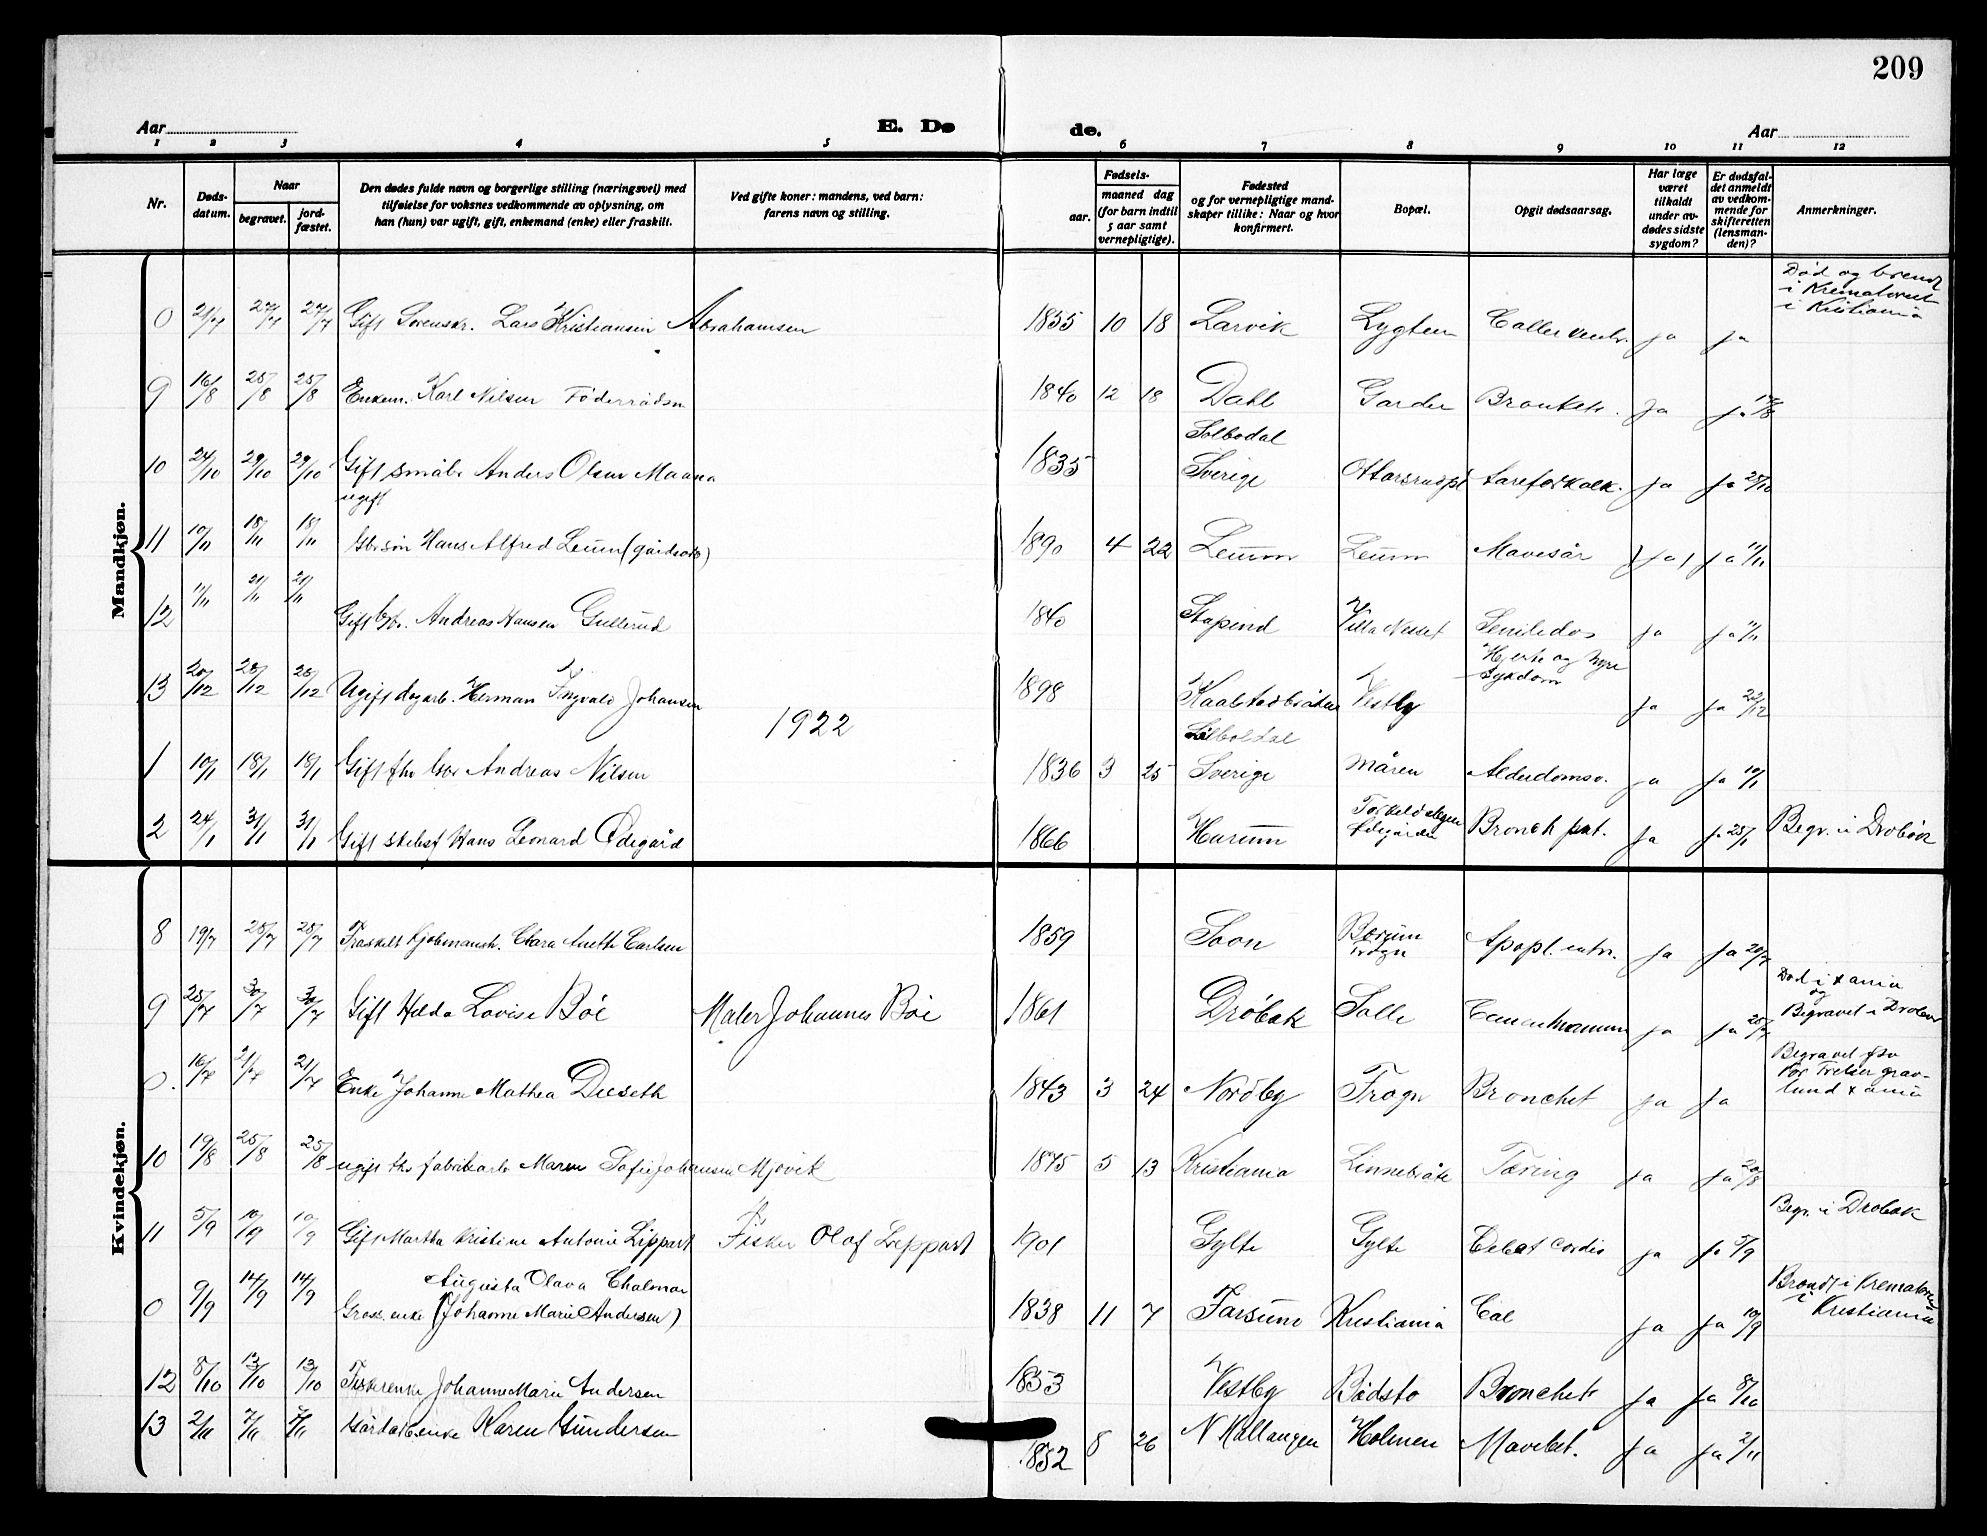 209
Aar
E. Dø de.
Aar
1 2 3 4 5 6 7 8 9 10 11 12
Nr.
Døds-
datum.
Naar
begravet.
jord-
fæstet.
Den dødes fulde navn og borgerlige stilling (næringsvei) med
tilføielse for voksnes vedkommende av oplysning, om
han (hun) var ugift, gift, enkemand (enke) eller fraskilt.
Ved gifte koner: mandens, ved barn:
farens navn og stilling.
Fødsels-
aar.
maaned dag
(for barn indtil
5 aar samt
vernepligtige).
Fødested
og for vernepligtige mand-
skaper tillike: Naar og hvor
konfirmert.
Bopæl.
Opgit dødsaarsag.
Har læge
været
tilkaldt
under av-
dødes sidste
sygdom?
Er dødsfal-
det anmeldt
av vedkom-
mende for
skifteretten
(lensman-
den)?
Anmerkninger.
Mandkjøn.
Død og brendt
i Krematoriet
i Kristiania
0 27/4 27/4 Gift Sorenskr. Lars Kristiansen Abrahamsen 1835 10 18 Larvik Lygten ja ja
9 16/8 25/8 25/8 Enkem. Karl Nilsen Föderådsm 1840 12 18 Dahl Garder Bronkit. Ja
Solbodal
10 24/10 29/10 29/10 Gift småbr Anders Olsen Maana 1835 Sverige Ottarsrudpl Aareforkalk. ja ja 25/10
ugift
11 10/11 18/11 18/11 Gbr.søn Hans Alfred Leum (gårdsarb) 1890 4 22 Leum Leum Mavesår ja ja 11/11
12 11/11 21/11 21/11 Gift Gbr. Andreas Hansen Gullerud 1840 Villa Nesset ja ja 11/11
Hjerte og nyre
sykdom
13 20/12 28/12 28/12 Ugift dagarb. Herman Ingvald Johansen 1898 Kaalstadbråten Vestby ja ja 22/12
1922
1 10/1 18/1 18/1 Gift fhv Gbr Andreas Nilsen 1836 3 25 Sverige Måren Alderdomsv. ja ja 10/1
2 24/1 31/1 31/1 Gift Hans Leonard Ødegård 1866 Harum Ødegården Bronch pnt. Ja ja 25/1 Begr. i Drøbak
Kvindekjøn.
8 19/7 25/7 25/7 Fraskilt kjøbmandsk. Clara Anette Carlsen 1859 Soon Borum Apopl. ja ja 20/7
Frogn
Død i Xania
og
Begravet i Drøbak
9 25/7 30/7 30/7 Gift Hilda Lovise Böe Maler Johannes Böe 1861 Drøbak Solle Cancer mammæ ja ja
Begravet fra
Vor Frelser grav-
lund Xania
0. 16/7 21/7 21/7 Enke Johanne Mathea Dieseth 1843 3 24 Nordby Frogn Bronchit ja ja
10 19/8 25/8 25/8 ugift fhv fabrikarb Maren Sofie Johansen Mjøvik 1875 5 13 Kristiania Linnebråte Tæring ja ja 20/8
Begr. i Drøbak
11 5/9 10/9 10/9 Gift Martha Kristine Antonie Lippart Fisker Olaf Lippart 1901 Gylte Gylte Debil cordis ja ja 5/9
Augusta Olava Thalmar
Brændt i Krematoriet
i Kristiania
0 9/9 14/9 14/9 Gross. enke (Johanne Marie Andersen) 1838 11 7 Farsund Kristiania ja ja 10/9
12 8/10 13/10 13/10 Fiskerenke Johanne Marie Andersen 1853 Vestby Bødsto Bronchit ja ja 8/10
13 2/11 7/11 7/11 Gårdarb.enke Karen Gundersen 1832 8 26 N Kallangen Holmen ja ja 2/11